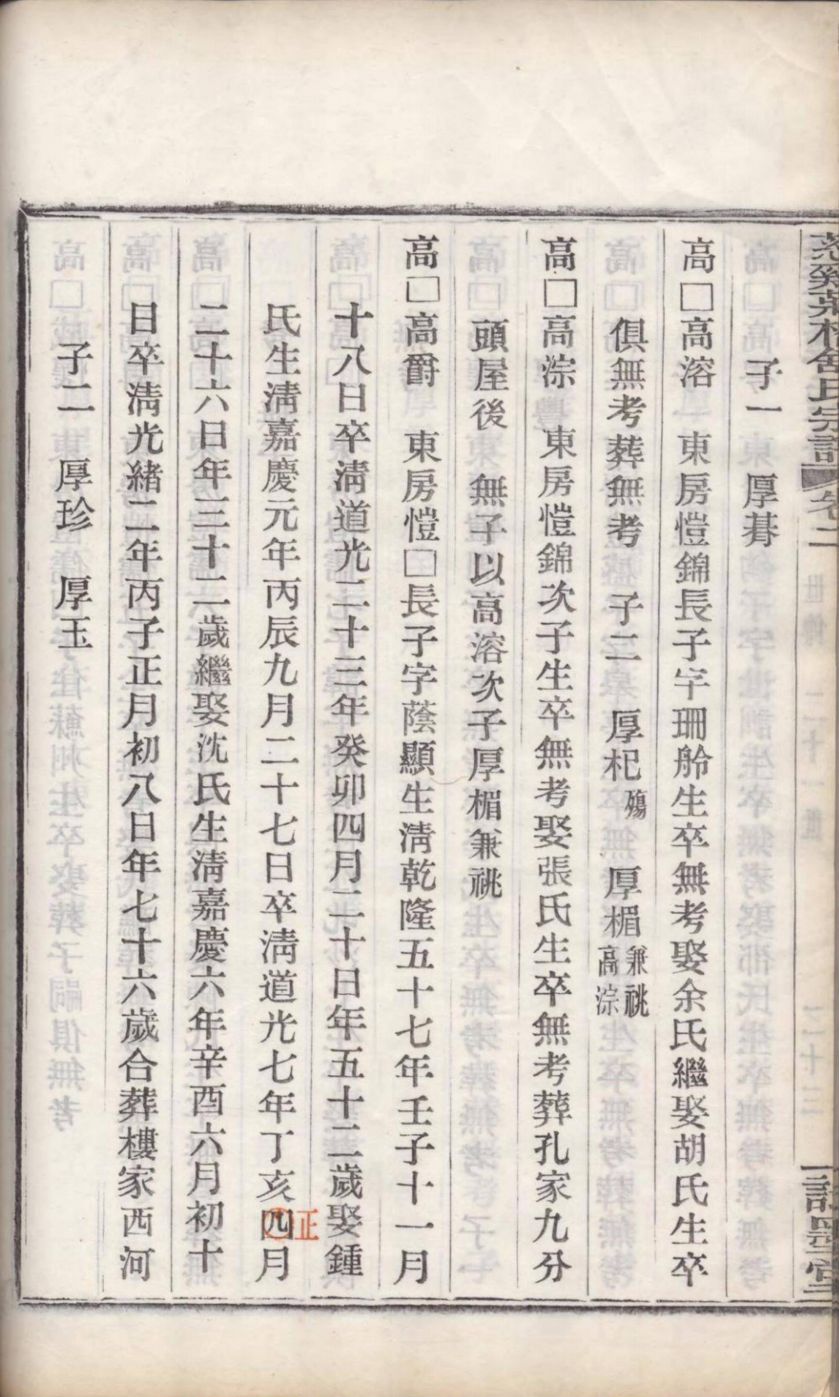 氏宗譜 卷二
子一 厚朞
高□高溶 東房愷錦長子字珊舲生卒無考娶余氏繼娶胡氏生卒
俱無考葬無考 子二 厚杞殤 厚楣兼祧高淙
高□高淙 東房愷錦次子生卒無考娶張氏生卒無考葬孔家九分
頭屋後 無子以高溶次子厚楣兼祧
高□高爵 東房愷□長子字蔭顯生淸乾隆五十七年壬子十一月
十八日卒淸道光二十三年癸卯四月二十日年五十二歲娶鍾
氏生淸嘉慶元年丙辰九月二十七日卒淸道光七年丁亥四月
正
二十六日年三十二歲繼娶沈氏生淸嘉慶六年辛酉六月初十
日卒淸光緒二年丙子正月初八日年七十六歲合葬樓家西河
子二 厚珍 厚玉